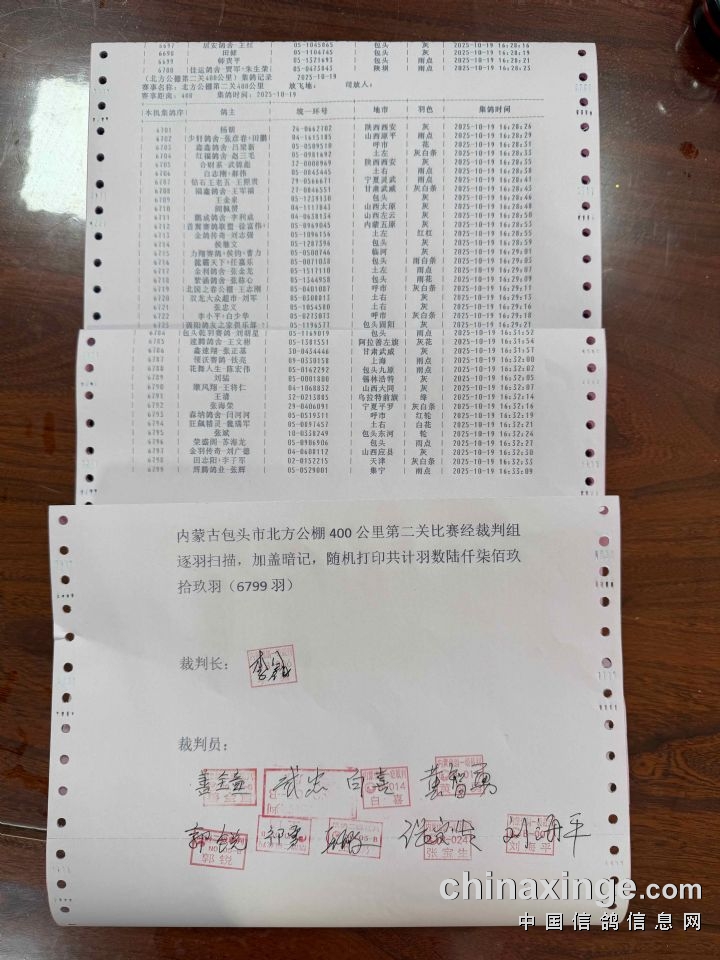 6697 居安鸽舍-王红 05-1045065 包头 灰 2025-10-19 16:28:16
6698 田健 05-1104745 包头 灰 2025-10-19 16:28:19
6699 师贵平 05-1521693 包头 雨点 2025-10-19 16:28:23
6700 佳运鸽舍-贾军+朱生荣 05-0475445 陕坝 雨点 2025-10-19 16:28:25
(北方公棚第二关400公里) 集鸽记录 2025-10-19
赛事名称: 北方公棚第二关400公里 放飞地: 司放人:
赛事距离: 400 集鸽时间: 2025-10-19
本机集鸽序 鸽主 统一环号 地市 羽色 集鸽时间
6701 杨韬 26-0662702 陕西西安 灰 2025-10-19 16:28:26
6702 04-1615185 山西原平 雨点 2025-10-19 16:28:29
6703 鑫鑫鸽舍-吕梁新 05-0509510 呼市 花 2025-10-19 16:28:31
6704 红福鸽舍-赵三毛 05-0981697 土左 灰白条 2025-10-19 16:28:33
6705 32-0008969 陕西西安 灰 2025-10-19 16:28:35
6706 白志刚+郝伟 05-0843445 土右 雨点 2025-10-19 16:28:38
6707 钻石王老五-王照贵 29-0566671 宁夏灵武 雨点 2025-10-19 16:28:40
6708 福鑫鸽舍-王军福 27-0846551 甘肃武威 灰白条 2025-10-19 16:28:43
6709 王金泉 05-1239130 包头 灰 2025-10-19 16:28:46
6710 04-1117843 山西太原 灰 2025-10-19 16:28:48
6711 鹏成鸽舍-李利成 04-0638134 山西左云 灰 2025-10-19 16:28:50
6712 05-0969045 内蒙五原 灰 2025-10-19 16:28:53
6713 金鸽传奇-刘志强 05-1096156 土左 红红 2025-10-19 16:28:55
6714 侯继文 05-1287396 包头 灰 2025-10-19 16:28:59
6715 05-0500746 临河 灰 2025-10-19 16:29:01
6716 龍霸天下-任嘉乐 05-0071038 包头 雨白条 2025-10-19 16:29:04
6717 金利鸽舍-张金龙 05-1517110 土左 雨点 2025-10-19 16:29:07
6718 05-1344958 包头 雨花 2025-10-19 16:29:09
6719 北国之春公棚-王志刚 05-0401087 呼市 灰白条 2025-10-19 16:29:11
6720 双龙大众超市-刘军 05-0308013 土右 灰 2025-10-19 16:29:13
6721 张忠义 05-1054861 土右 灰 2025-10-19 16:29:15
6722 李小平+白少华 05-0273073 呼市 灰白条 2025-10-19 16:29:17
6723 05-1196577 包头固阳 灰 2025-10-19
6784 05-1169019 包头 雨点 2025-10-19 16:31:52
6785 速腾鸽舍-王文彬 05-1381551 阿拉善左旗 灰花 2025-10-19 16:31:54
6786 鑫速翔-张正基 30-0434446 甘肃武威 灰 2025-10-19 16:31:57
6787 09-0030158 上海 雨点 2025-10-19 16:32:00
6788 花舞人生-陈宏伟 05-0142292 包头九原 雨点 2025-10-19 16:32:02
6789 刘猛 05-0001800 锡林浩特 灰 2025-10-19 16:32:05
6790 顺风翔-王将仁 04-1068832 山西大同 灰 2025-10-19 16:32:07
6791 王清 32-0213885 乌拉特前旗 绛 2025-10-19 16:32:14
6792 张海荣 29-0406091 宁夏平罗 灰白条 2025-10-19 16:32:16
6793 森纳鸽舍-闫河河 05-0519311 呼市 红轮 2025-10-19 16:32:18
6794 狂飙精灵-魏瑞军 05-0891957 土右 白花 2025-10-19 16:32:21
6795 张斌 10-0338249 包头东河 轮 2025-10-19 16:32:24
6796 荣盛阁-苏海龙 05-0906406 包头 雨点 2025-10-19 16:32:27
6797 金羽传奇-刘广德 04-0608112 山西应县 灰 2025-10-19 16:32:30
6798 田志阳+李子军 02-0152215 天津 灰白条 2025-10-19 16:32:33
6799 辉腾鸽业-张辉 05-0529001 集宁 雨点 2025-10-19 16:33:09
内蒙古包头市北方公棚 400 公里第二关比赛经裁判组
逐羽扫描,加盖暗记,随机打印共计羽数陆仟柒佰玖
拾玖羽(6799 羽)
裁判长:
裁判员:
武忠 白喜 黄智勇
白喜
郭锐 张宝生 刘海平
郭锐 张宝生 刘海平
chinaxinge.com
中国信鸽信息网